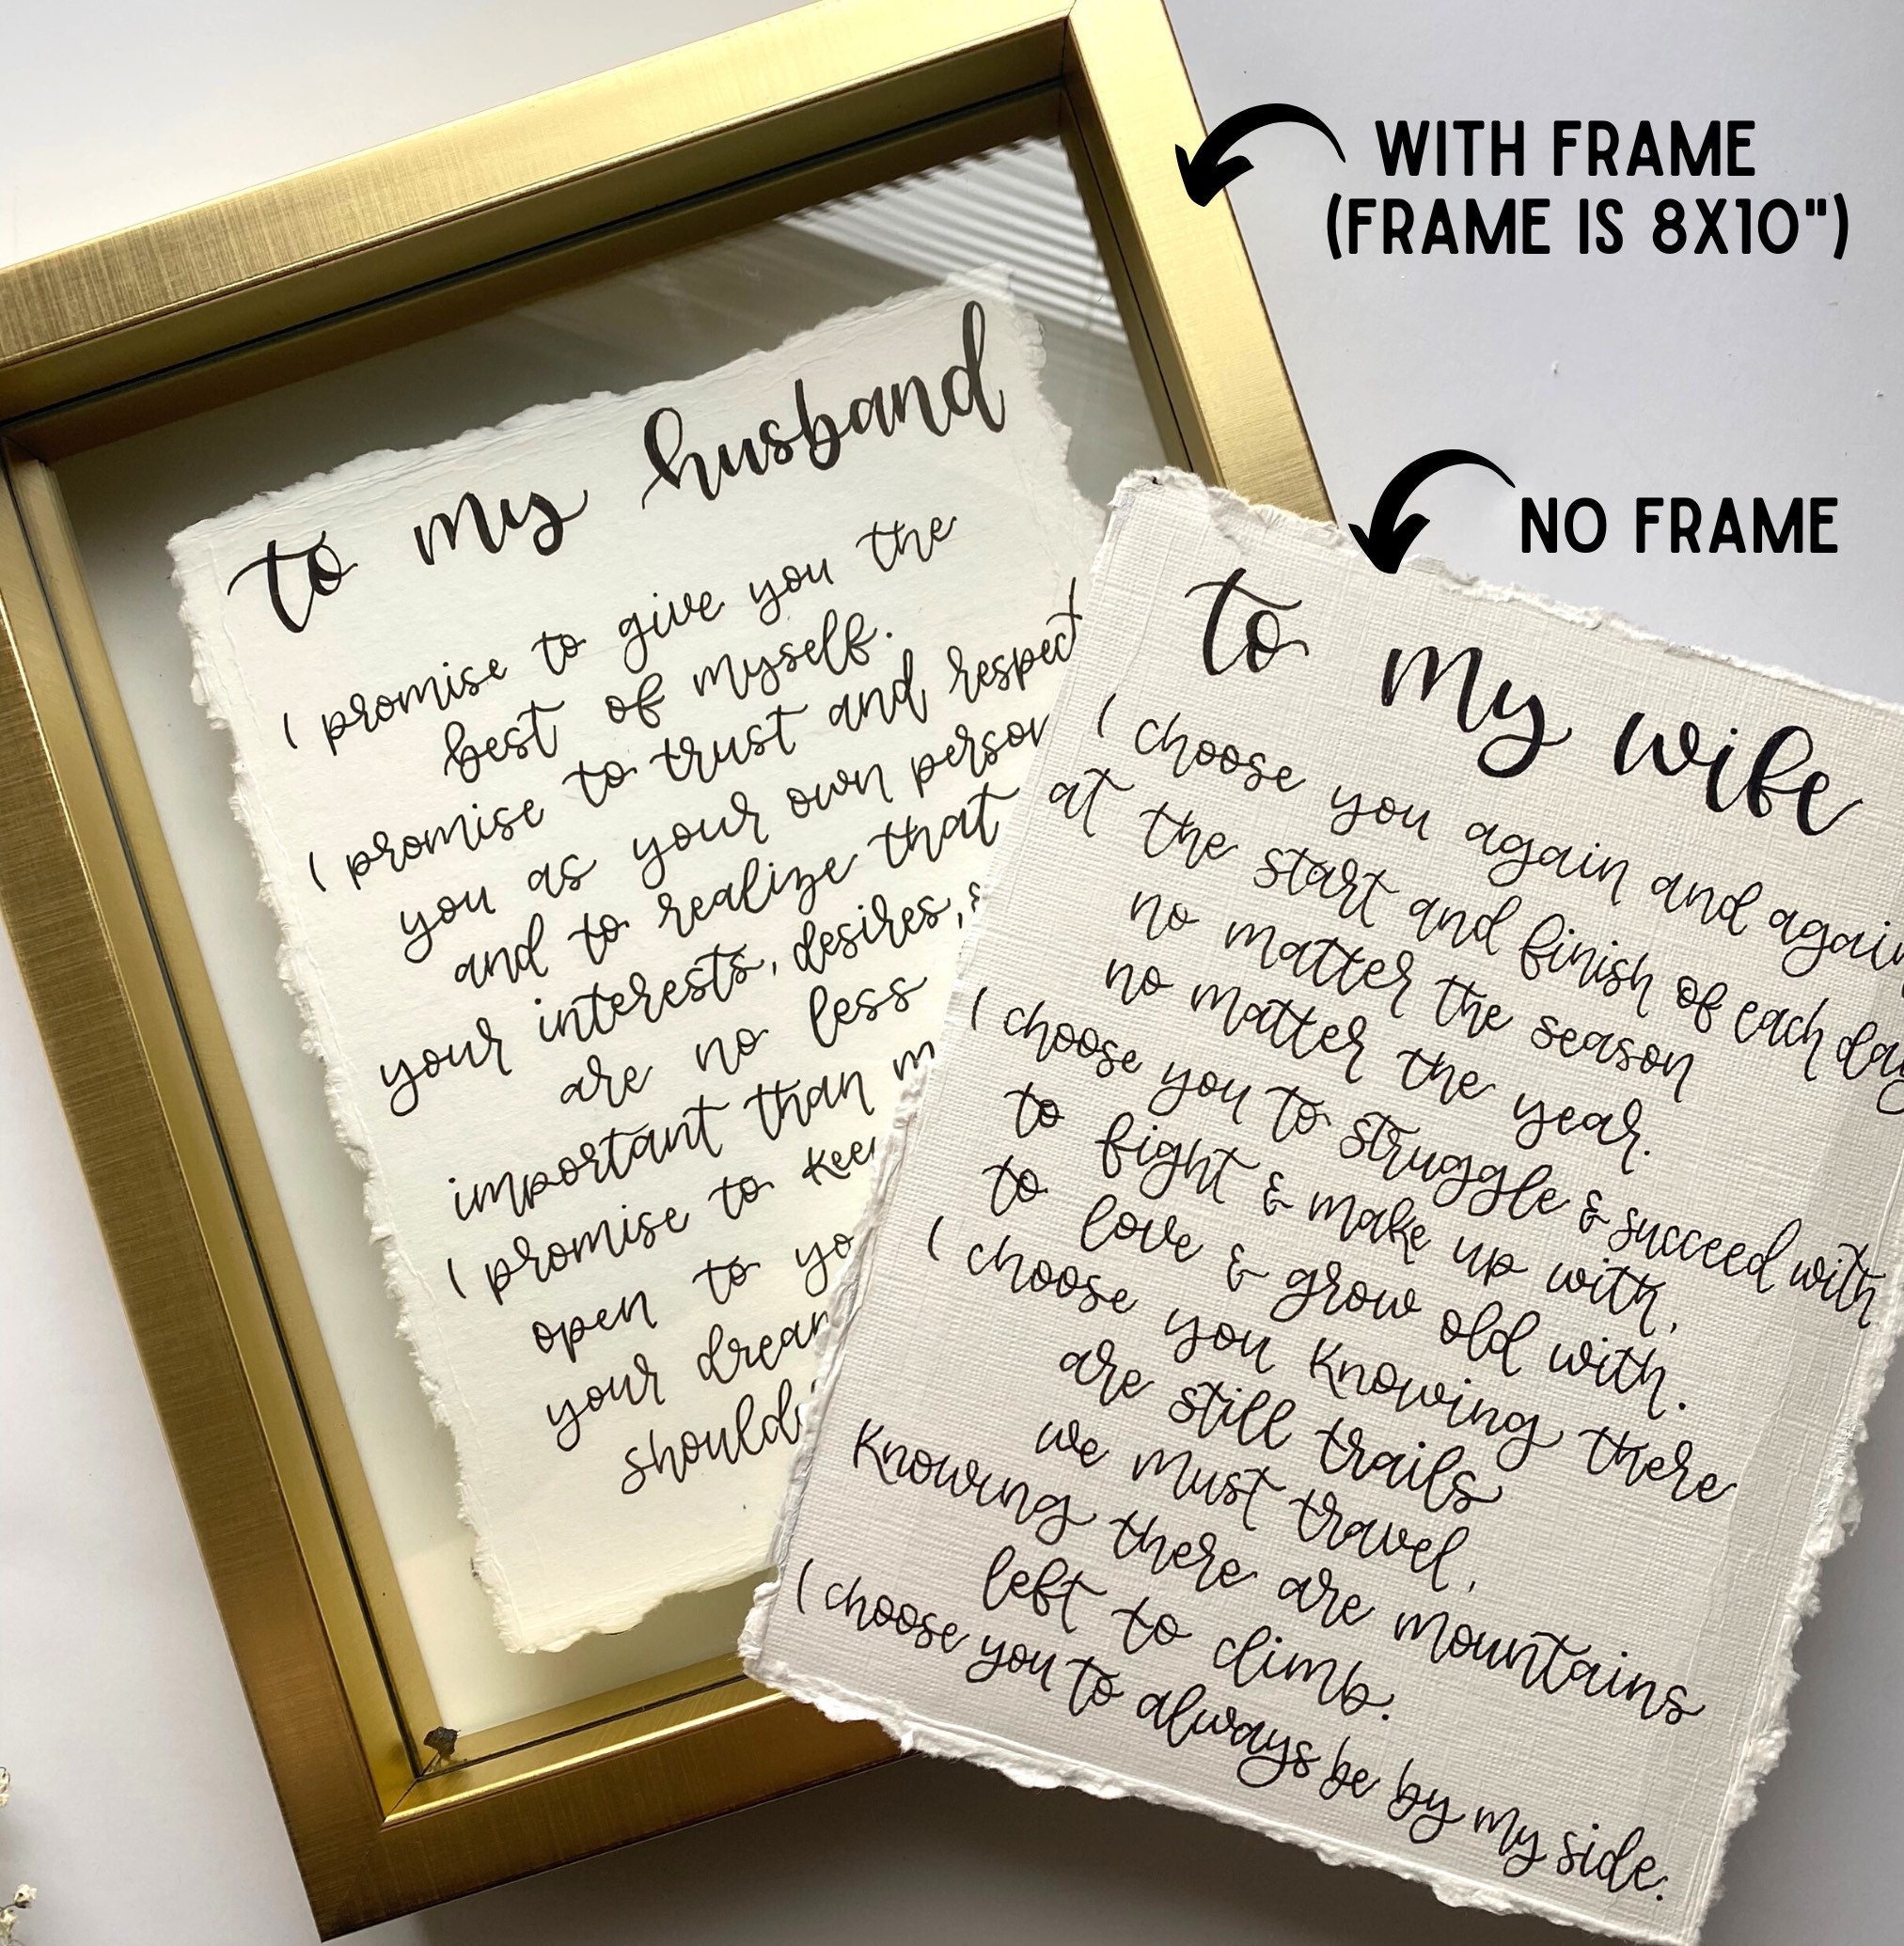 WITH FRAME
(FRAME IS 8X10")
NO FRAME
to my husband
I promise to give you the
best of myself.
I promise to trust and respect
you as your own person
and to realize that
your interests, desires,
are no less
important than
I promise to
open to
your
to my wife
I choose you again and again
at the start and finish of each day
no matter the season
no matter the year.
I choose you to struggle & succeed with
to fight & make up with,
to love & grow old with.
I choose you knowing there
are still trails
we must travel,
knowing there are mountains
left to climb.
I choose you to always be by my side.